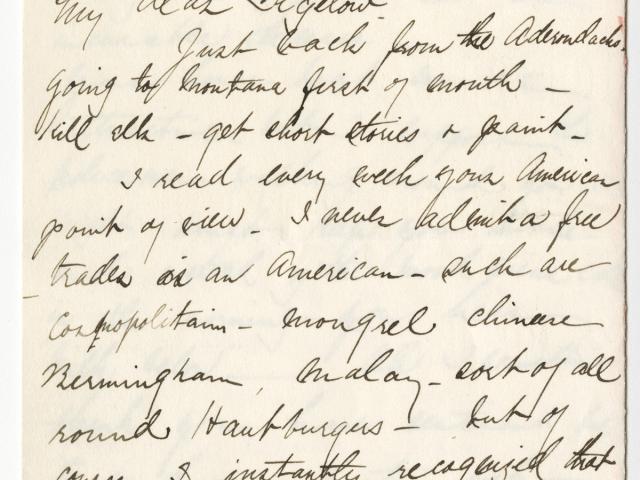 My dear Bigelow
Just back from the Aderondacks.
going to Montana first of mouth -
kill elk - get short stories & paint -
I read every week your American
point of view - I never admit a free
trader is an American - such are
Cosmopolitain - mongrel chinese
Bermingham, Malay - sort of all
round Hautburgers - but of
course I instantly recognized that